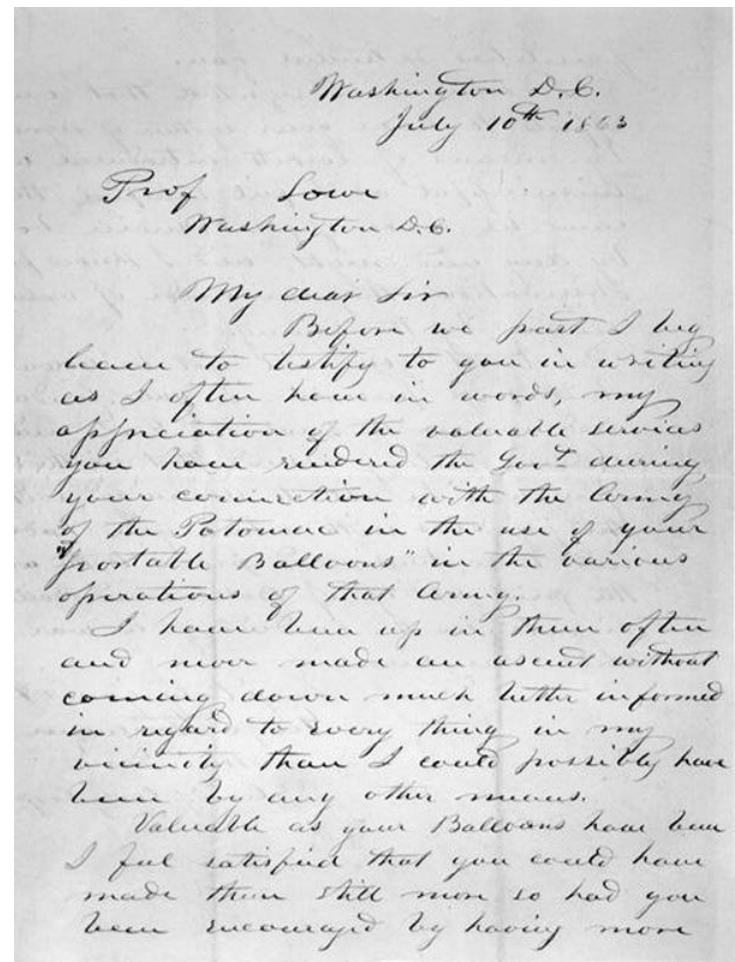 Washington D.C.
July 10th 1863
Prof Lowe
Washington D.C.
My dear Sir
Before we part I beg
leave to testify to you in writing
as I often have in words, my
appreciation of the valuable services
you have rendered the Govt during
your connection with the Army
of the Potomac in the use of your
"portable Balloons" in the various
operations of that Army.
I have been up in them often
and never made an ascent without
coming down much better informed
in regard to every thing in my
vicinity than I could possibly have
been by any other means.
Valuable as your Balloons have been
I feel satisfied that you could have
made them still more so had you
been encouraged by having more